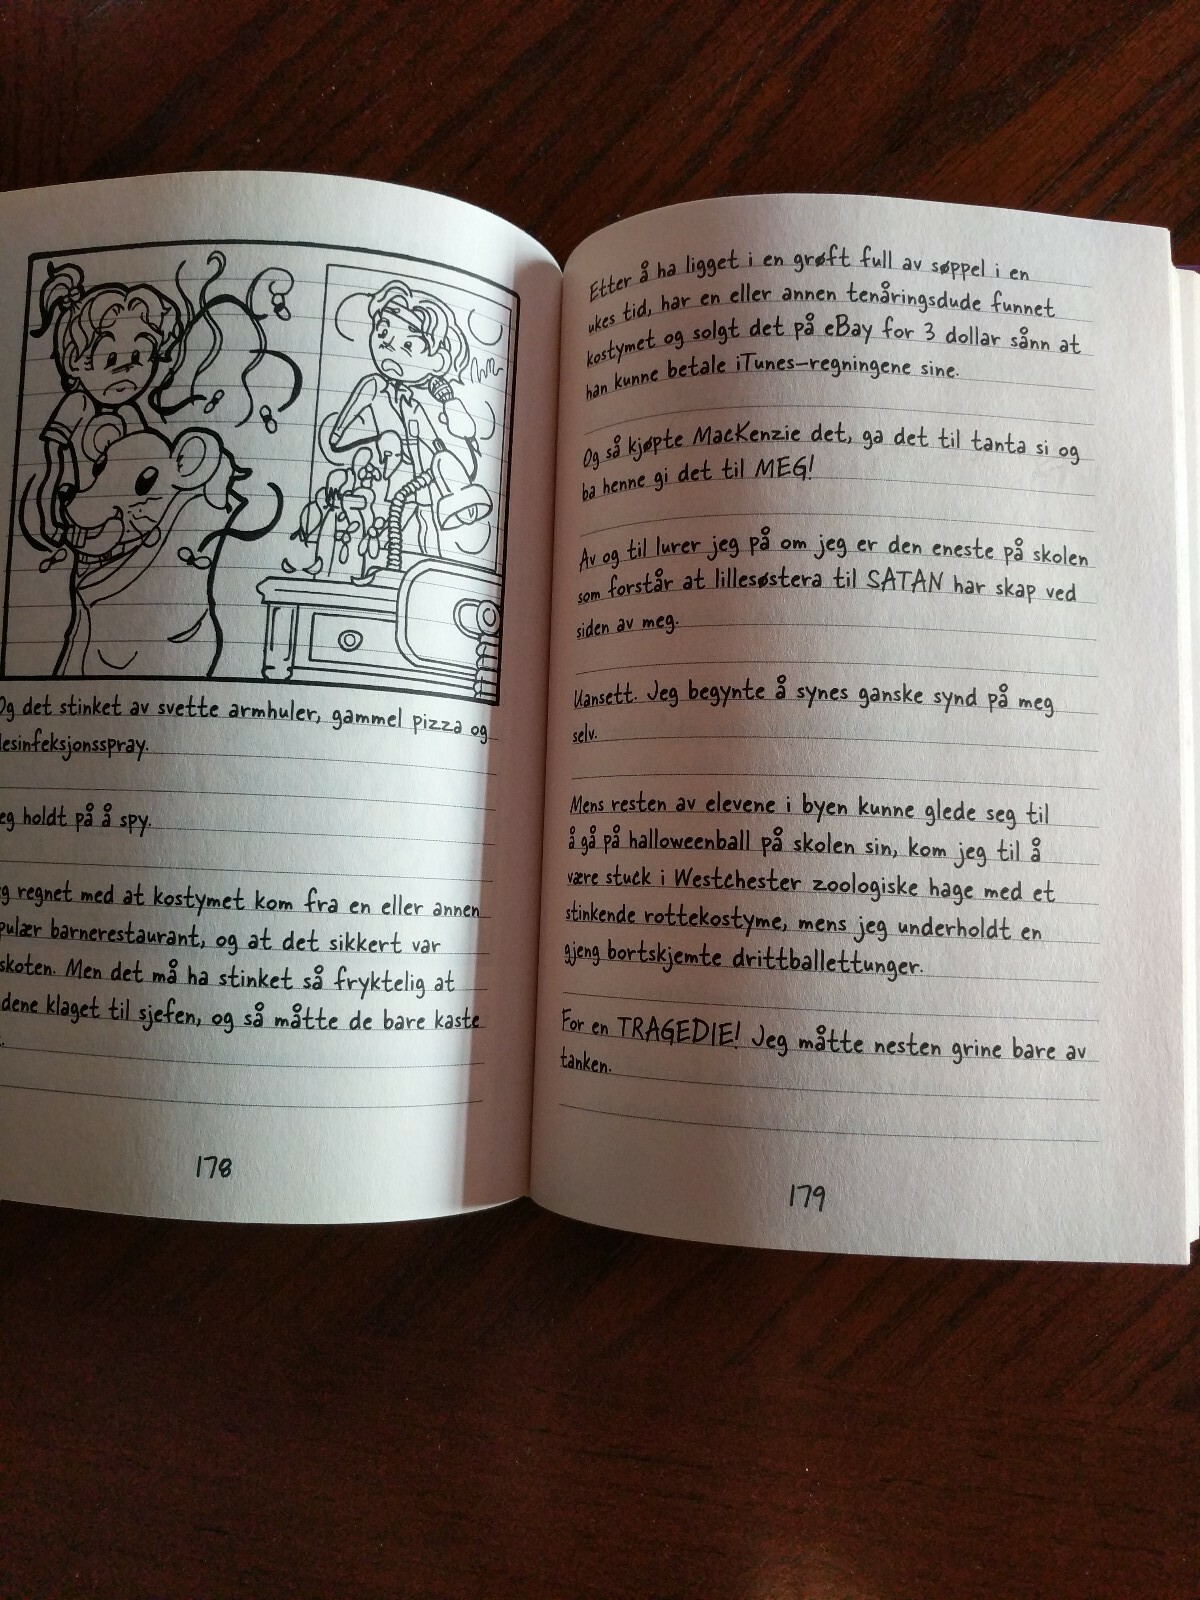 Og det stinket av svette armhuler, gammel pizza og
desinfeksjonsspray.
eg holdt på å spy.
g regnet med at kostymet kom fra en eller annen
pulær barnerestaurant, og at det sikkert var
skoten. Men det må ha stinket så fryktelig at
dene klaget til sjefen, og så måtte de bare kaste
178
Etter å ha ligget i en grøft full av søppel i en
ukes tid, har en eller annen tenåringsdude funnet
kostymet og solgt det på eBay for 3 dollar sånn at
han kunne betale iTunes-regningene sine.
Og så kjøpte MacKenzie det, ga det til tanta si og
ba henne gi det til MEG!
Av og til lurer jeg på om jeg er den eneste på skolen
som forstår at lillesøstera til SATAN har skap ved
siden av meg.
Uansett. Jeg begynte å synes ganske synd på meg
selv.
Mens resten av elevene i byen kunne glede seg til
å gå på halloweenball på skolen sin, kom jeg til å
være stuck i Westchester zoologiske hage med et
stinkende rottekostyme, mens jeg underholdt en
gjeng bortskjemte drittballettunger.
For en TRAGEDIE! Jeg måtte nesten grine bare av
tanken.
179